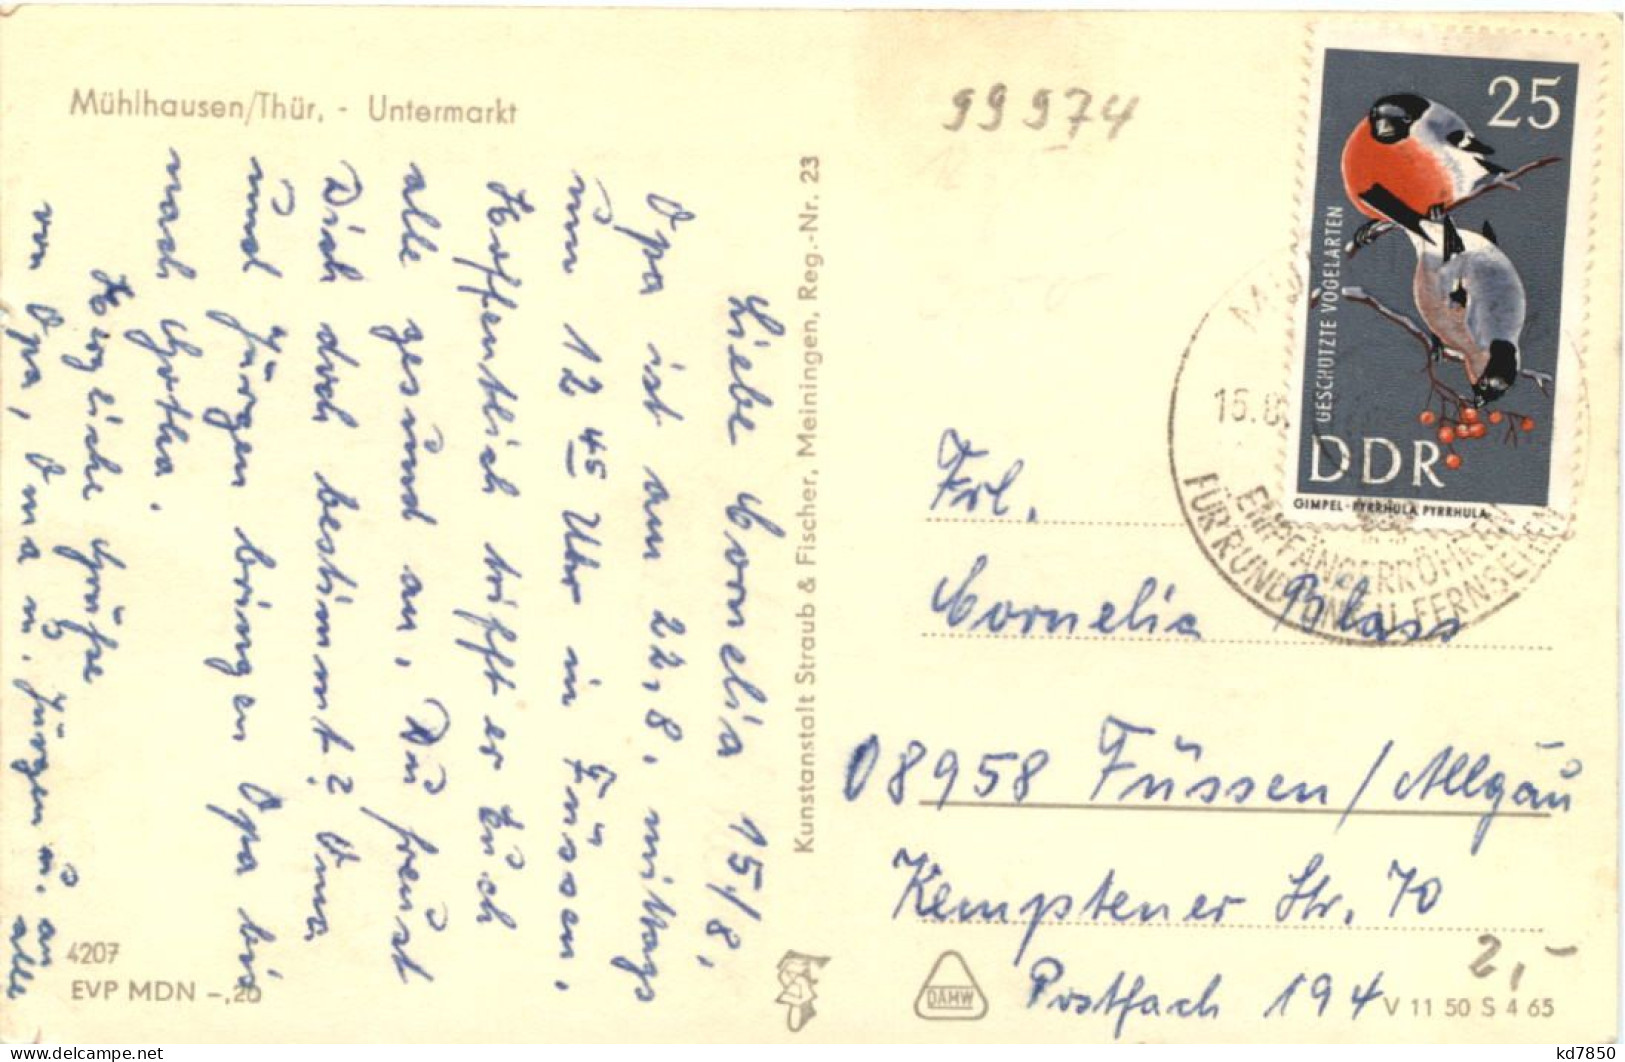 Mühlhausen/Thür. - Untermarkt
99974
Liebe Cornelia 15/8,
Opa ist am 22,8, mittags
um 12 45 Uhr in Füssen,
Hoffentlich trifft er Euch
alle gesund an, Du freust
Dich doch bestimmt? Oma
und Jürgen bringen Opa bis
nach Gotha.
Herzliche Grüße
von Opa, Oma u. Jürgen u. an alle
4207
EVP MDN -,20
Kunstanstalt Straub & Fischer, Meiningen, Reg.-Nr. 23
25
GESCHÜTZTE VOGELARTEN
DDR
GIMPEL-PYRRHULA PYRRHULA
EMPFÄNGERRÖHREN
FÜR RUNDFUNK U. FERNSEHEN
Frl.
Cornelia Blass
08958 Füssen/Allgäu
Kemptener Str. 70
Postfach 194
2,-
DAHW
V 11 50 S 4 65
delcampe.net
kd7850